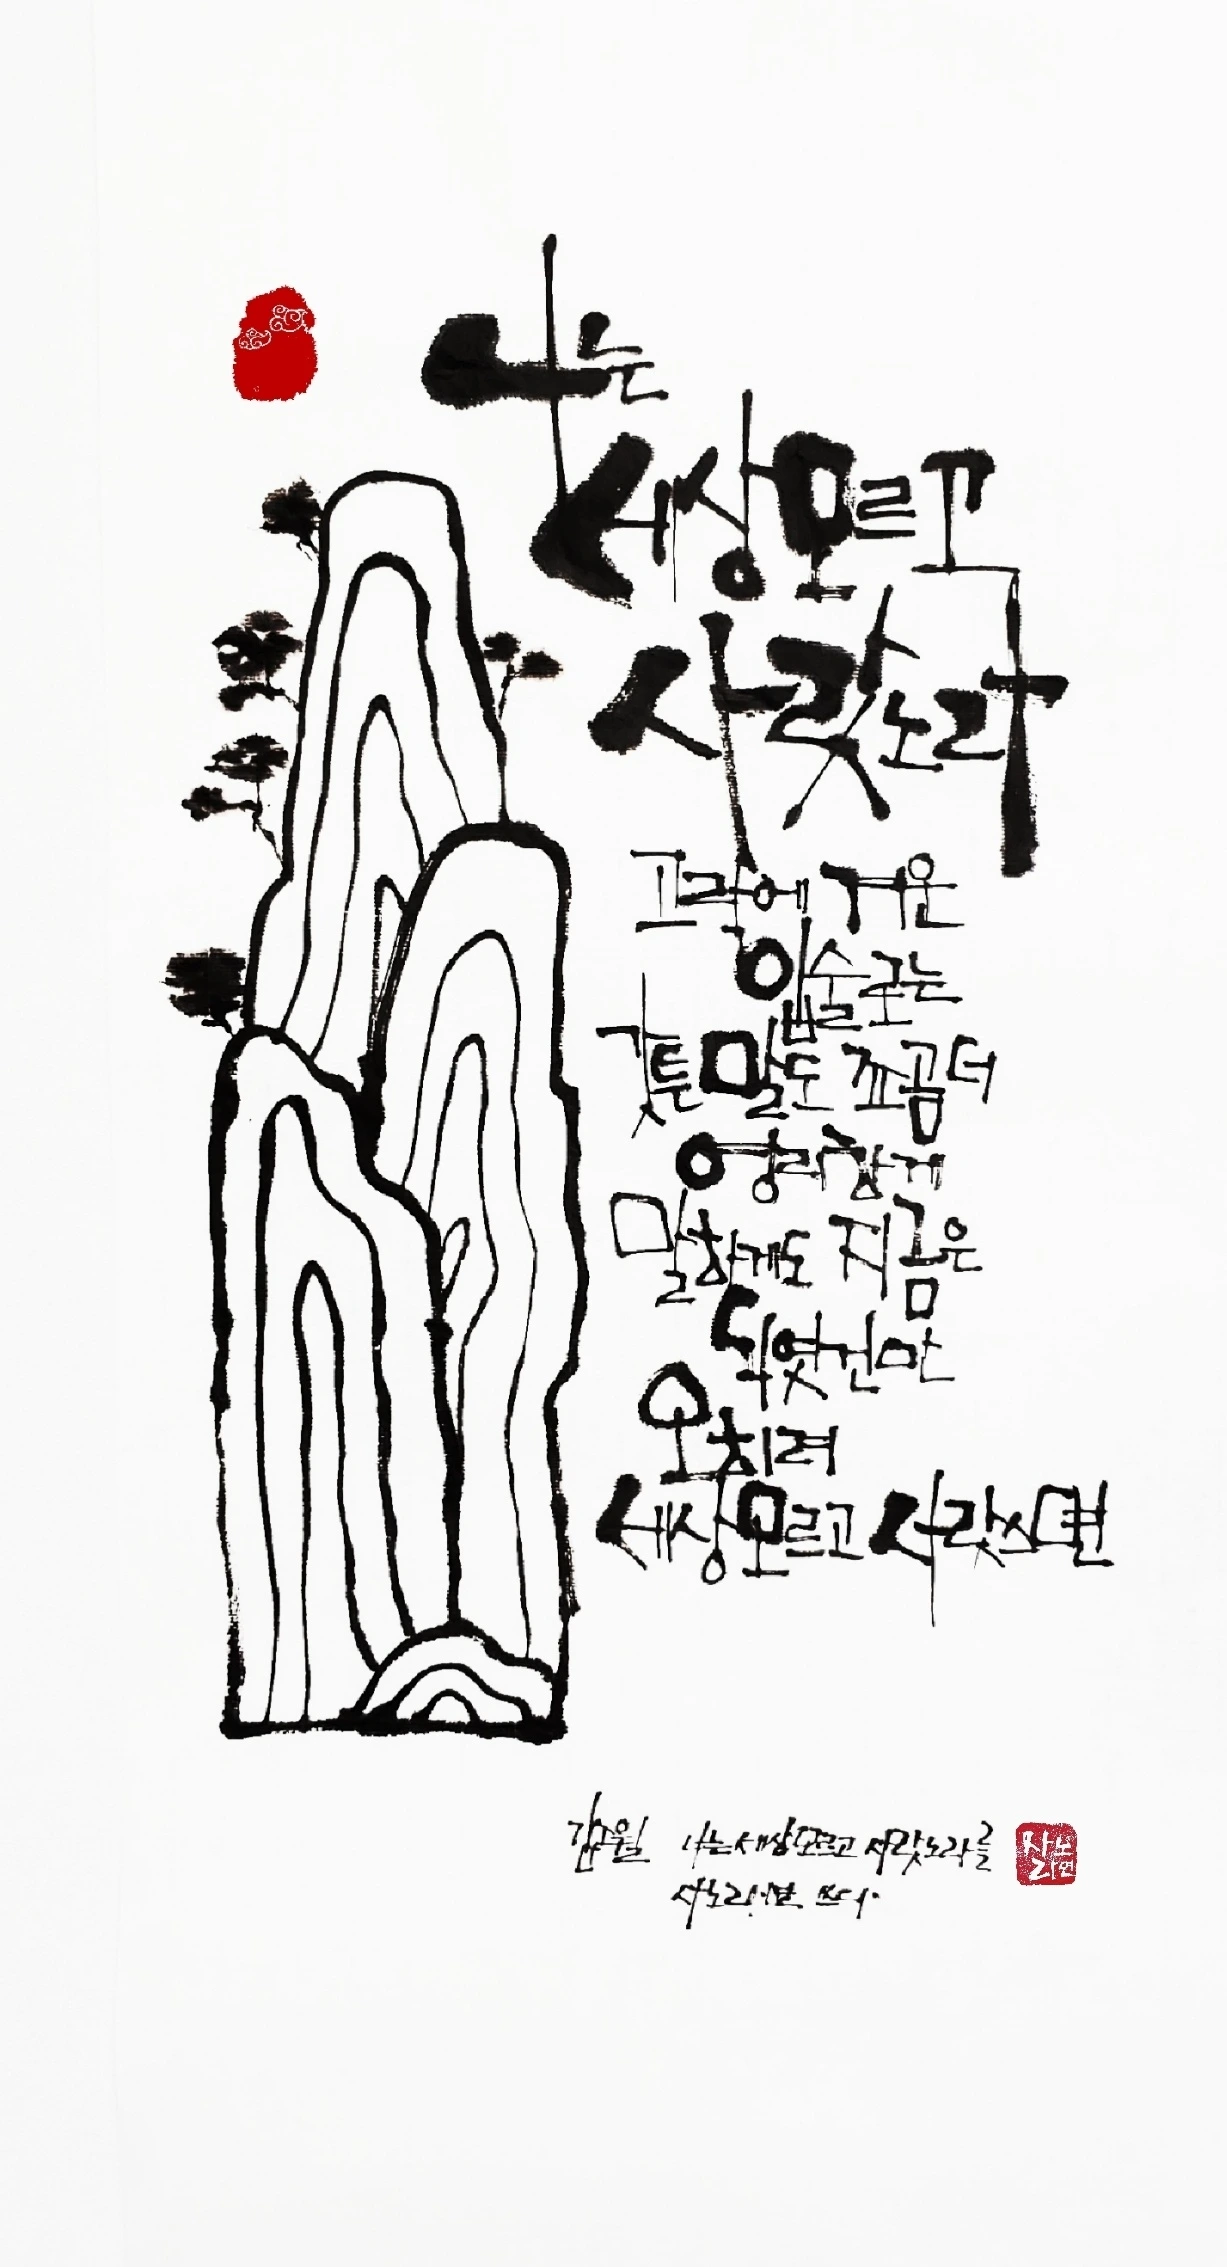 나는
세상모르고
사랏노라
고락에 겨운
입술로는
갓튼 말도 죠곰더
영리하게
말하게도 지금은
되엿건만
오히려
세상모르고 사랏스면
김소월 나는 세상모르고 사랏노라를
사노라면 쓰다.